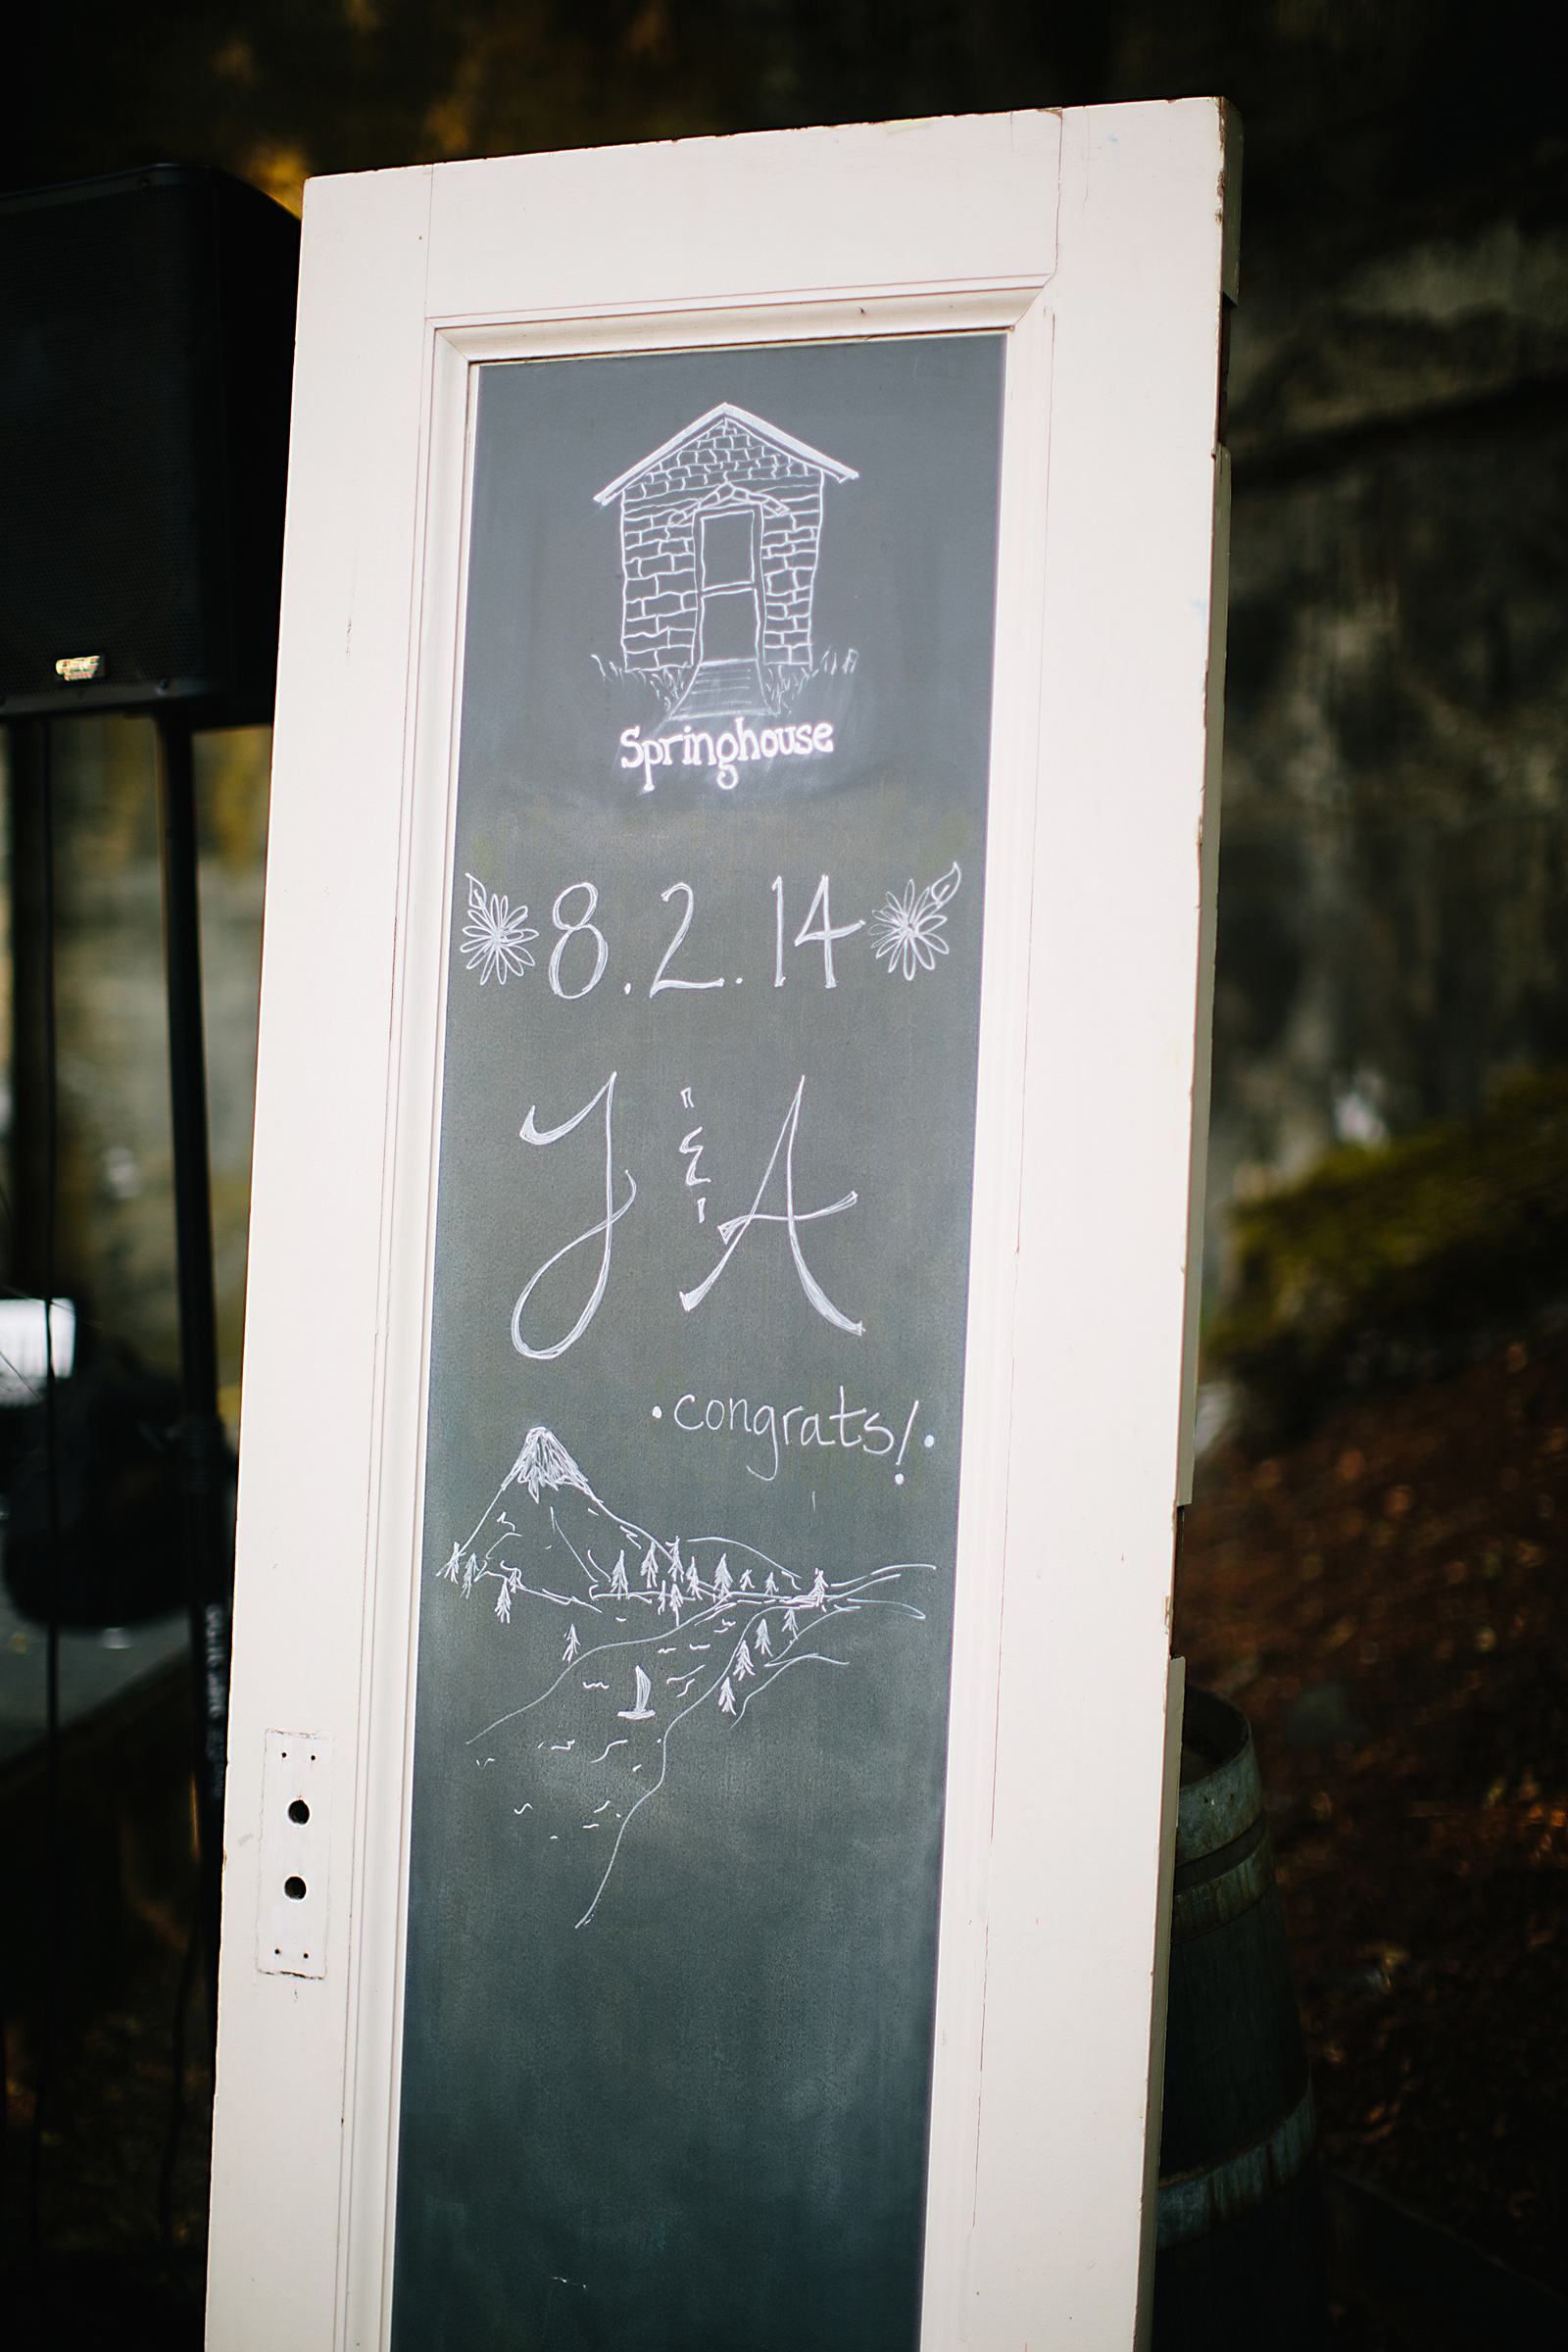 Springhouse
8.2.14
J & A
•congrats!•